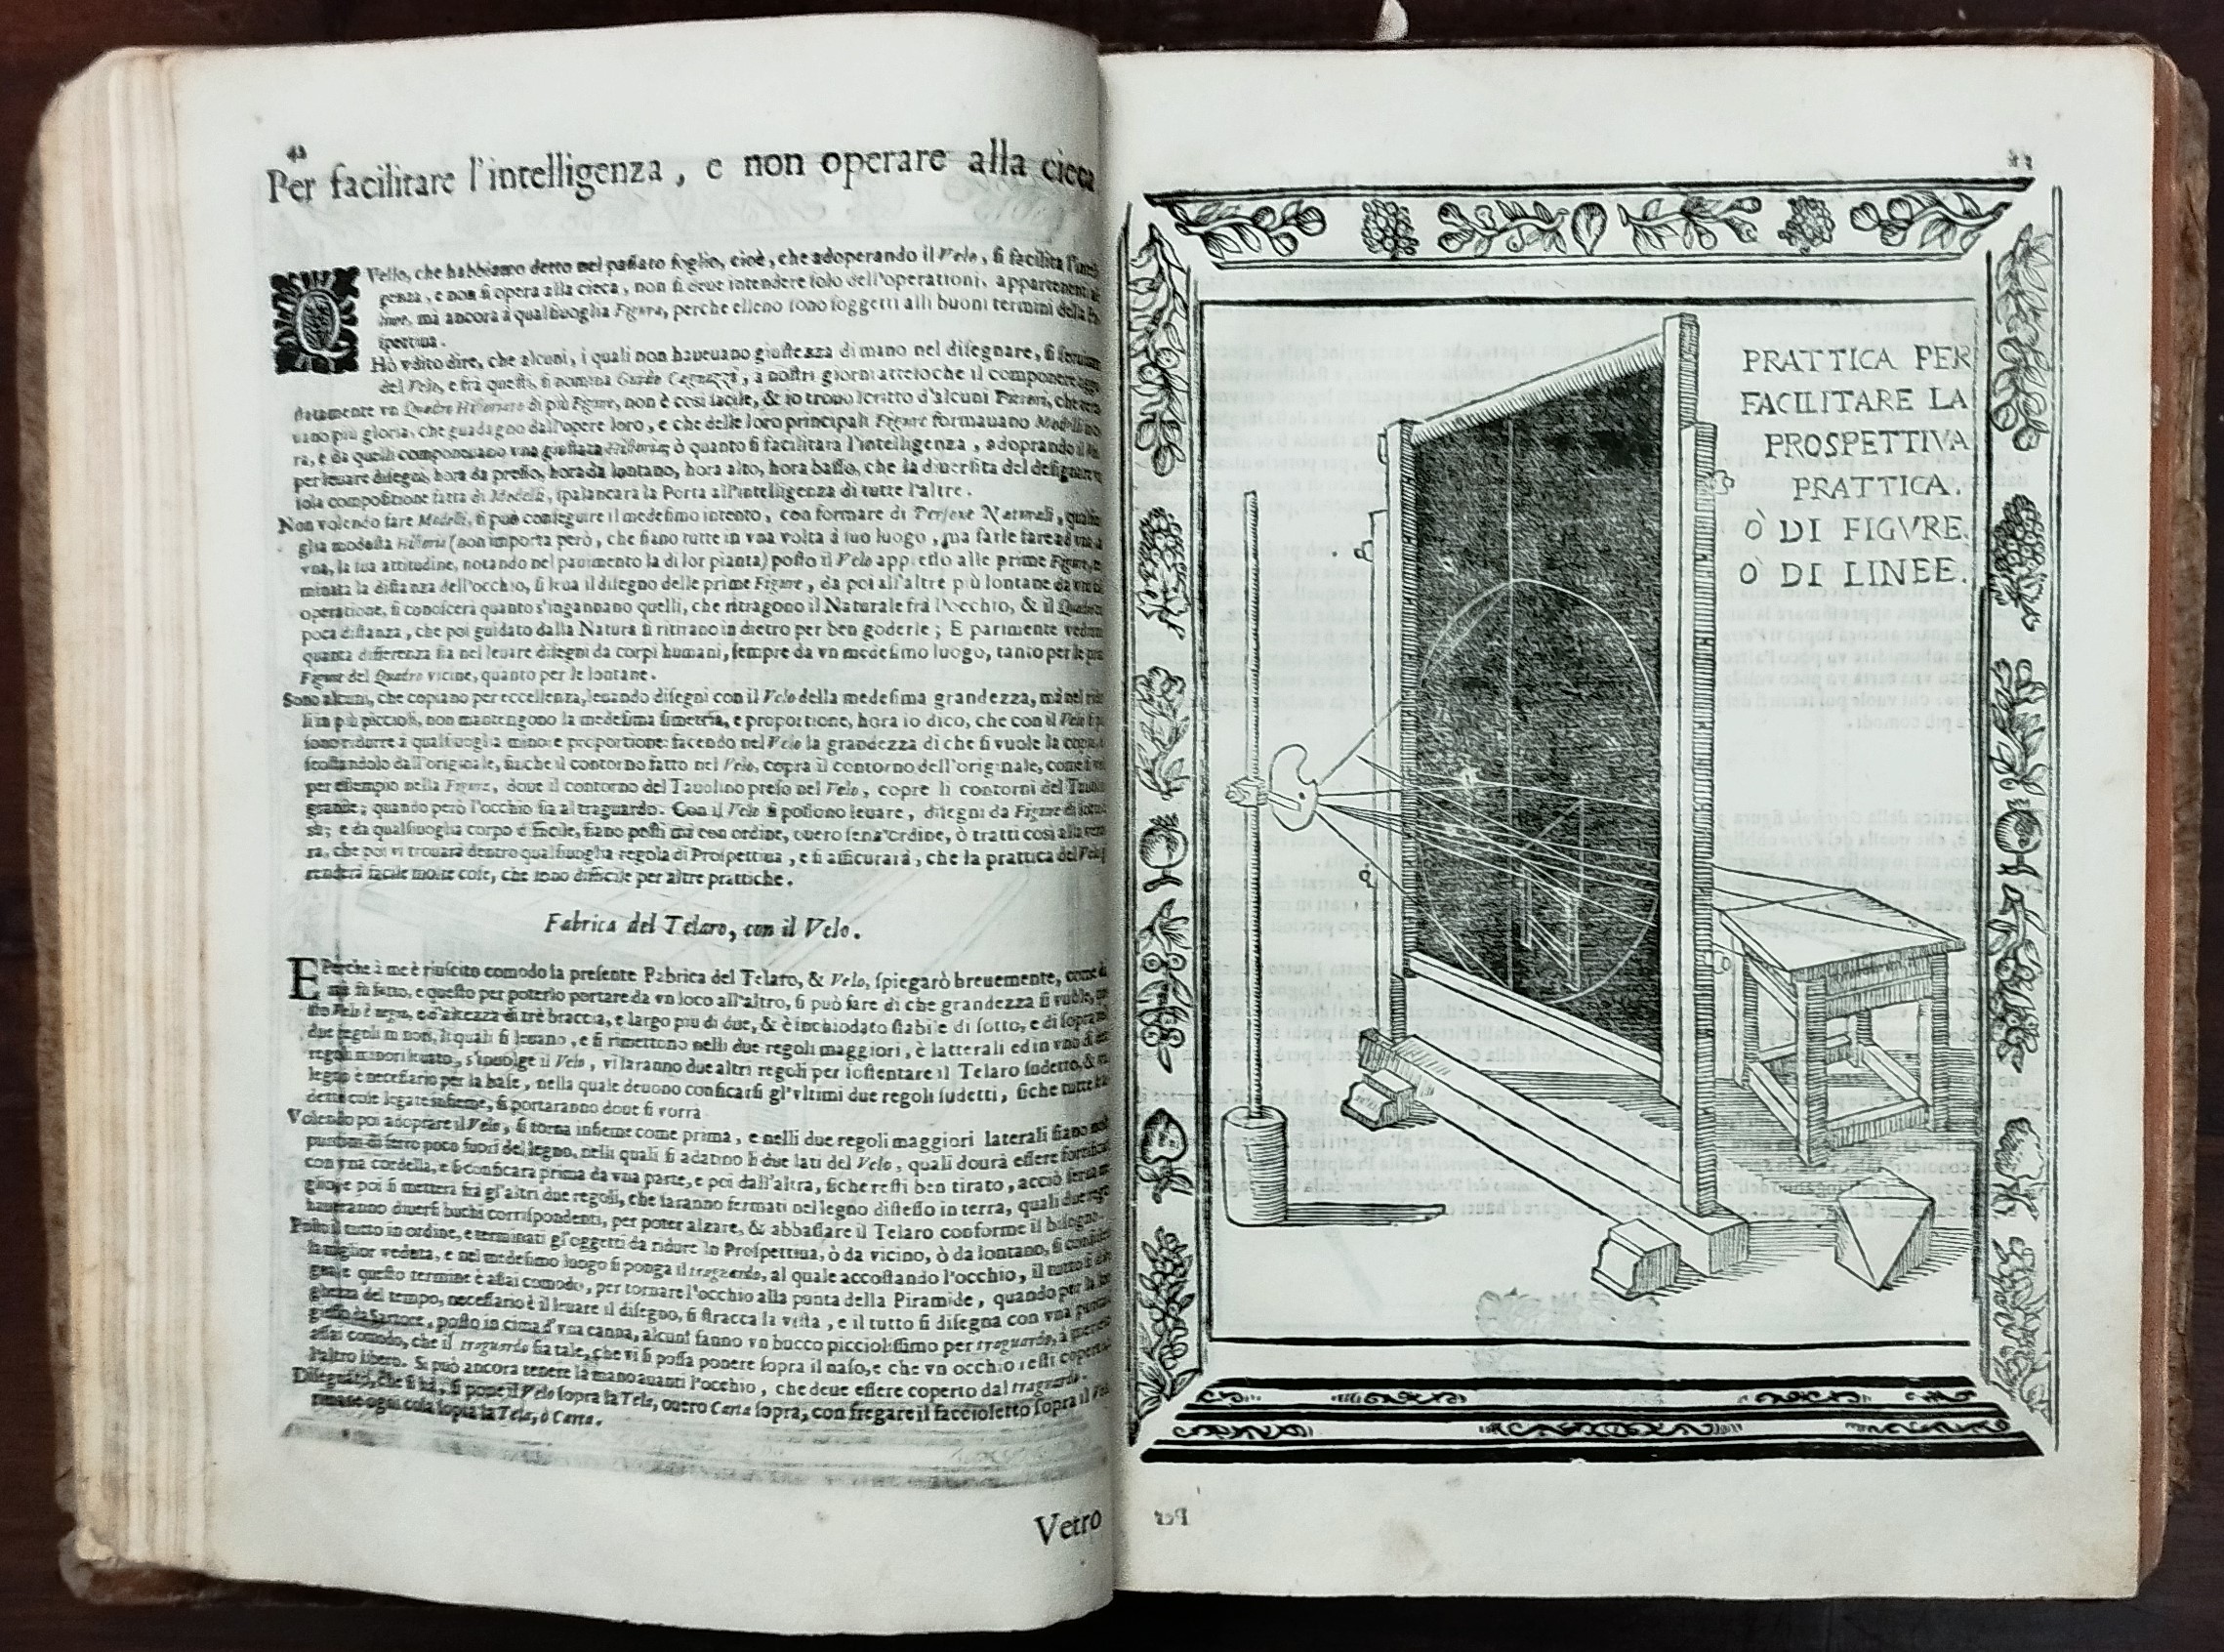 42
Per facilitare l'intelligenza, e non operare alla cieca
QVello, che habbiamo detto nel passato foglio, cioè, che adoperando il Velo, si facilita l'
genza, e non si opera alla cieca, non si deue intendere solo dell'operationi, appartenenti
mà ancora à qualsiuoglia Figura, perche elleno sono soggetti alli buoni termini della
spettiua.
Hò vdito dire, che alcuni, i quali non haueuano giustezza di mano nel disegnare, si
del Velo, e frà questi, si nomina Guido Cagnazzi, à nostri giorni attesoche il componere
datamente vn Quadro Historiato di più Figure, non è così facile, & io trouo scritto d'alcuni Pittori, che
uano più gloria, che guadagno dall'opere loro, e che delle loro principali Figure formauano
ra, e da quelli componeuano vna giustata Historia; ò quanto si facilitarà l'intelligenza, adoprando il
per leuare disegni, hora da presso, hora da lontano, hora alto, hora basso, che la diuersità del
sola compositione fatta di Modelli, spalancarà la Porta all'intelligenza di tutte l'altre.
Non volendo fare Modelli, si può conseguire il medesimo intento, con formare di Persone Naturali,
glia modesta Historia (non importa però, che siano tutte in vna volta à suo luogo, ma farle fare ad vna à
vna, la sua attitudine, notando nel pauimento la di lor pianta) posto il Velo appresso alle prime Figure,
minata la distanza dell'occhio, si leua il disegno delle prime Figure, da poi all'altre più lontane da
operatione, si conoscerà quanto s'ingannano quelli, che ritragono il Naturale frà l'occhio, & il
poca distanza, che poi guidato dalla Natura si ritirano in dietro per ben goderle; E parimente
quanta differenza sia nel leuare disegni da corpi humani, sempre da vn medesimo luogo, tanto per le
Figure del Quadro vicine, quanto per le lontane.
Sono alcuni, che copiano per eccellenza, leuando disegni con il Velo della medesima grandezza, mà nel
li in più piccioli, non mantengono la medesima simetria, e proportione, hora io dico, che con il Velo si
sono ridurre à qualsiuoglia minore proportione: facendo nel Velo la grandezza di che si vuole la copia,
scostandolo dall'originale, sin che il contorno fatto nel Velo, copra il contorno dell'originale, come
per essempio nella Figura, doue il contorno del Tauolino preso nel Velo, copre li contorni del
grande; quando però l'occhio sia al traguardo. Con il Velo si possono leuare, disegni da Figure di
e da qualsiuoglia corpo è facile, siano posti mà con ordine, ouero senz'ordine, ò tratti così alla
ra, che poi vi trouarà dentro qualsiuoglia regola di Prospettiua, e si assicurarà, che la prattica del Velo
renderà facile molte cose, che sono difficile per altre prattiche.
Fabrica del Telaro, con il Velo.
E Perche à me è riuscito comodo la presente Fabrica del Telaro, & Velo, spiegarò breuemente, come
fù fatto, e questo per poterlo portare da vn loco all'altro, si può fare di che grandezza si vuole,
Velo è negro, e d'altezza di trè braccia, e largo più di due, & è inchiodato stabile di sotto, e di sopra
due regoli minori, li quali si leuano, e si rimettono nelli due regoli maggiori, è latterali ed in vno
regoli minori leuato, s'inuolge il Velo, vi saranno due altri regoli per sostentare il Telaro sudetto, &
legno è necessario per la base, nella quale deuono conficarsi gl'vltimi due regoli sudetti, siche tutte
dette cose legate insieme, si portaranno doue si vorrà
Volendo poi adoprare il Velo, si torna insieme come prima, e nelli due regoli maggiori laterali siano
puntine di ferro poco fuori del legno, nelli quali si adatino li due lati del Velo, quali dourà essere
con vna cordella, e si conficarà prima da vna parte, e poi dall'altra, siche resti ben tirato, acciò
poi si metterà frà gl'altri due regoli, che saranno fermati nel legno disteso in terra, quali due
haueranno diuersi buchi corrispondenti, per poter alzare, & abbassare il Telaro conforme il bisogno.
Posto il tutto in ordine, e terminati gl'oggetti da ridure in Prospettiua, ò da vicino, ò da lontano, si
la miglior veduta, e nel medesimo luogo si ponga il traguardo, al quale accostando l'occhio, il tutto si
questo termine è assai comodo, per tornare l'occhio alla punta della Piramide, quando per la
ghezza del tempo, necessario è il leuare il disegno, si stracca la vista, e il tutto si disegna con vna
gesso da Sartore, posto in cima d'vna canna, alcuni fanno vn bucco picciolissimo per traguardo, à
assai comodo, che il traguardo sia tale, che vi si possa ponere sopra il naso, e che vn occhio resti coperto
l'altro libero. Si può ancora tenere la mano auanti l'occhio, che deue essere coperto dal traguardo.
Disegnato, che si hà, si pone il Velo sopra la Tela, ouero Carta sopra, con fregare il faccioletto sopra il
rimane ogni cosa sopra la Tela, ò Carta.
Vetro
PRATTICA PER
FACILITARE LA
PROSPETTIVA
PRATTICA.
Ò DI FIGVRE.
Ò DI LINEE.